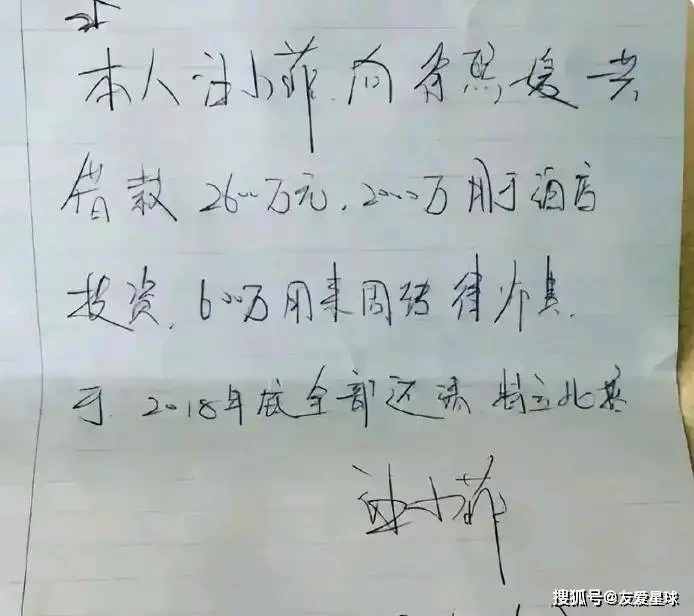 本人汪小菲,向徐熙媛共
借款2600万元,2000万用于酒店
投资,600万用来周转律师费,
于2018年底全部还清,特立此据
汪小菲
搜狐号@友爱星球